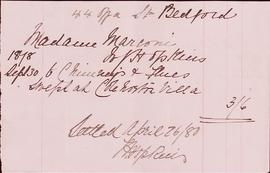 44 Spa St Bedford
Madame Marconi
To J H Hopkins
1878
Sept 30 6 Chimneys & Flues
Swept at Villa
3/6
Settled April 26/80
J Hopkins